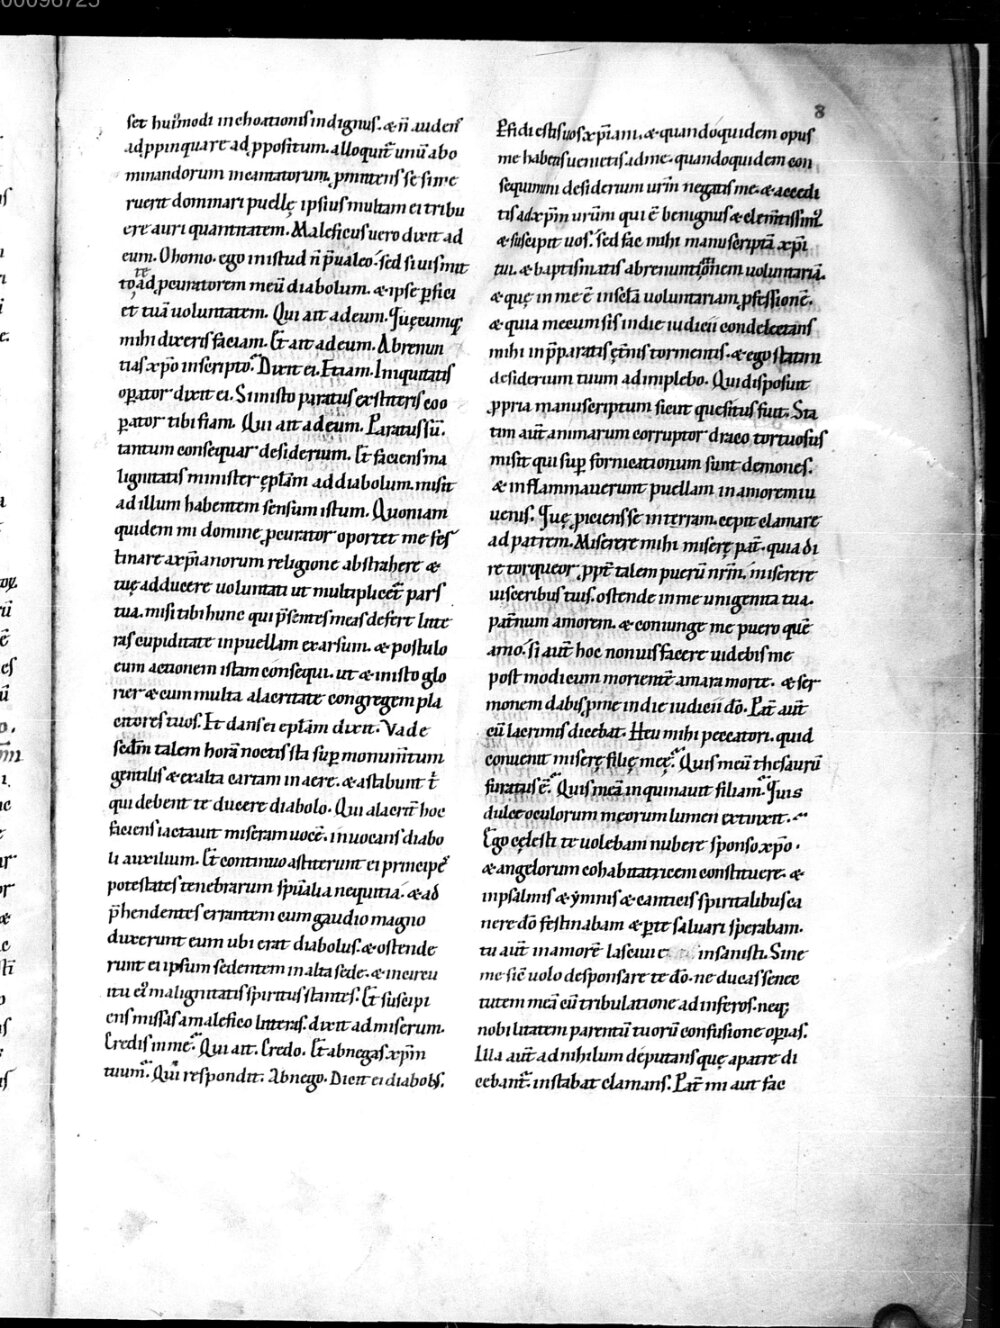 00098725
8
set hui᷒modi inchoationis indignus. & n̄ audens
adp̱pinquare adp̱positum. alloquit̄ unū abo
minandorum incantatorum. p̱mittens se si me
ruerit dominari puellę ipsius multam ei tribu
ere auri quantitatem. Maleficus uero dixit ad
eum. O homo. ego in istud n̄ p̄ualeo. sed si uis mit
to te ad p̱curatorem meū diabolum. & ipse ꝑfici
et tuā uoluntatem. Qui ait ad eum. Quęcumq;
mihi dixeris faciam. Et̄ ait ad eum. Abrenun
tias xp̄o in scripto. Dixit ei. Etiam. Iniquitatis
oꝑator dixit ei. Si in isto paratus extiteris coo
ꝑator tibi fiam. Qui ait ad eum. Paratus sū.
tantum consequar desiderium. Et̄ faciens ma
lignitatis minister ępl̄am ad diabolum. misit
ad illum habentem sensum istum. Quoniam
quidem mi domine p̱curator oportet me fes
tinare a xp̄ianorum religione abstrahere &
tuę adducere uoluntati ut multiplicet̄ pars
tua. misi tibi hunc qui p̄sentes meas defert litte
ras cupiditate in puellam exarsum. & postulo
eum actionem istam consequi. ut & in isto glo
rier & cum multa alacritate congregem pla
citores tuos. Et dans ei epl̄am dixit. Vade
scd̄m talem horā noctis sta suꝑ monum̄tum
gentilis & exalta cartam in aere. & astabunt t̄
qui debent te ducere diabolo. Qui alacrit̄ hoc
faciens iactauit miseram uocē. inuocans diabo
li auxilium. Et̄ continuo astiterunt ei principes
potestates tenebrarum spūalia nequitiā. & ad
p̄hendentes errantem cum gaudio magno
duxerunt eum ubi erat diabolus. & ostende
runt ei ipsum sedentem in alta sede. & in circu
itu ei᷒ malignitatis spiritus stantes. Et̄ suscipi
ens missas a malefico litteras. dixit ad miserum.
Credis in me. Qui ait. Credo. Et̄ abnegas xp̄m
tuum. Qui respondit. Abnego. Dicit ei diabol᷒.
Perfidi estis uos xp̄iani. & quando quidem opus
me habens uenietis ad me. quando quidem con
sequimini desiderium ur̄m negatis me. & accedi
tis ad xp̄m urūm qui ē benignus & clem̄tissim᷒.
& suscipit uos. sed fac mihi manuscriptā xp̄i
tui. & baptismatis abrenuntionem uoluntariā.
& quę in me ē in sc̄la uoluntariam p̱fessionē.
& quia mecum sis in die iudicii condelectans
mihi in p̄paratis ęt̄nis tormentis. & ego statim
desiderium tuum adimplebo. Qui disposuit
p̱pria manuscriptum sicut quesitus fuit. Sta
tim aut̄ animarum corruptor draco tortuosus
misit qui suꝑ fornicationum sunt demones.
& inflammauerunt puellam in amorem iu
uenis. Quę p̱iciens se in terram. cepit clamare
ad patrem. Miserere mihi miserę pat̄. quia di
re torqueor p̱pt̄ talem puerū nr̄m. miserere
uisceribus tuis. ostende in me unigenita tua.
pat̄num amorem. & coniunge me puero quē
amo. si aut̄ hoc non uis facere uidebis me
post modicum morientē amara morte. & ser
monem dabis p̱ me in die iudicii dō. Pat̄ aut̄
cū lacrimis dicebat. Heu mihi peccatori. quid
conuenit miserę filię meę. Quis meū thesaurū
furatus ē. Quis meā inquinauit filiam. Quis
dulce oculorum meorum lumen extinxit.
Ego cęlesti te uolebam nubere sponso xp̄o.
& angelorum cohabitatricem constituere. &
in psalmis & ymnis & canticis spiritalibus ca
nere dō festinabam & ꝑ te saluari sperabam.
tu aut̄ in amorē lasciuie insanisti. Sine
me sic̄ uolo desponsare te dō. ne ducas senec
tutem meā cū tribulatione ad inferos. neq;
nobilitatem parentū tuorū confusione oꝑias.
Illa aut̄ ad nihilum deputans quę a patre di
cebant̄. instabat clamans. Pat̄ mi aut fac